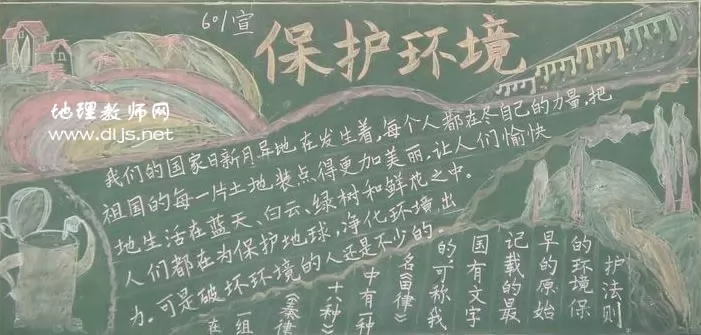 601宣
保护环境
地理教师网
www.dljs.net
我们的国家日新月异地在发生着,每个人都在尽自己的力量,把
祖国的每一片土地装点得更加美丽,让人们愉快
地生活在蓝天、白云、绿树和鲜花之中。
人们都在为保护地球,净化环境出
力。可是破坏环境的人还是不少的。
在
一组
《秦律
十八种》
中有一种
名《田律》
的可称我
国有文字
记载的最
早的原始
的环境保
护法则